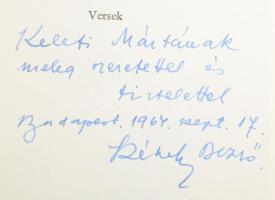 Versek
Keleti Mártának
meleg szeretettel és
tisztelettel
Budapest. 1964. szept. 17.
Székely Dezső.